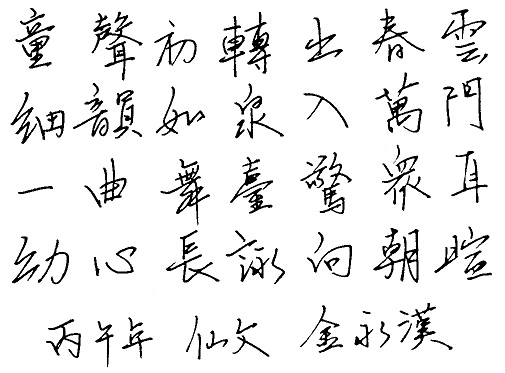 童聲初轉出春雲
細韻如泉入萬門
一曲舞臺驚衆耳
幼心長詠向朝暄
丙午年 仙文 金永漢